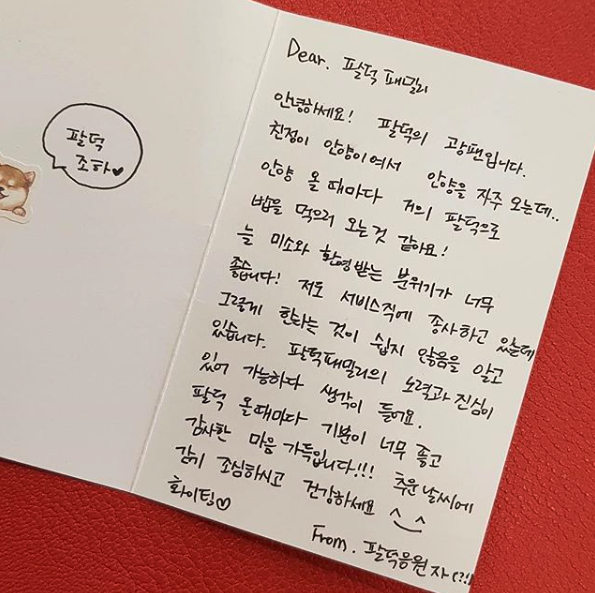 팔덕
조하♥
Dear. 팔덕 패밀리
안녕하세요! 팔덕의 광팬입니다.
친정이 안양이여서 안양을 자주 오는데..
안양 올 때마다 거의 팔덕으로
밥을 먹으러 오는것 같아요!
늘 미소와 환영받는 분위기가 너무
좋습니다! 저도 서비스직에 종사하고 있는데
그렇게 한다는 것이 쉽지 않음을 알고
있습니다. 팔덕패밀리의 노력과 진심이
있어 가능하다 생각이 들어요.
팔덕 올때마다 기분이 너무 좋고
감사한 마음 가득입니다!!! 추운 날씨에
감기 조심하시고 건강하세요 ^_^
화이팅♡
From. 팔덕응원자(?!)